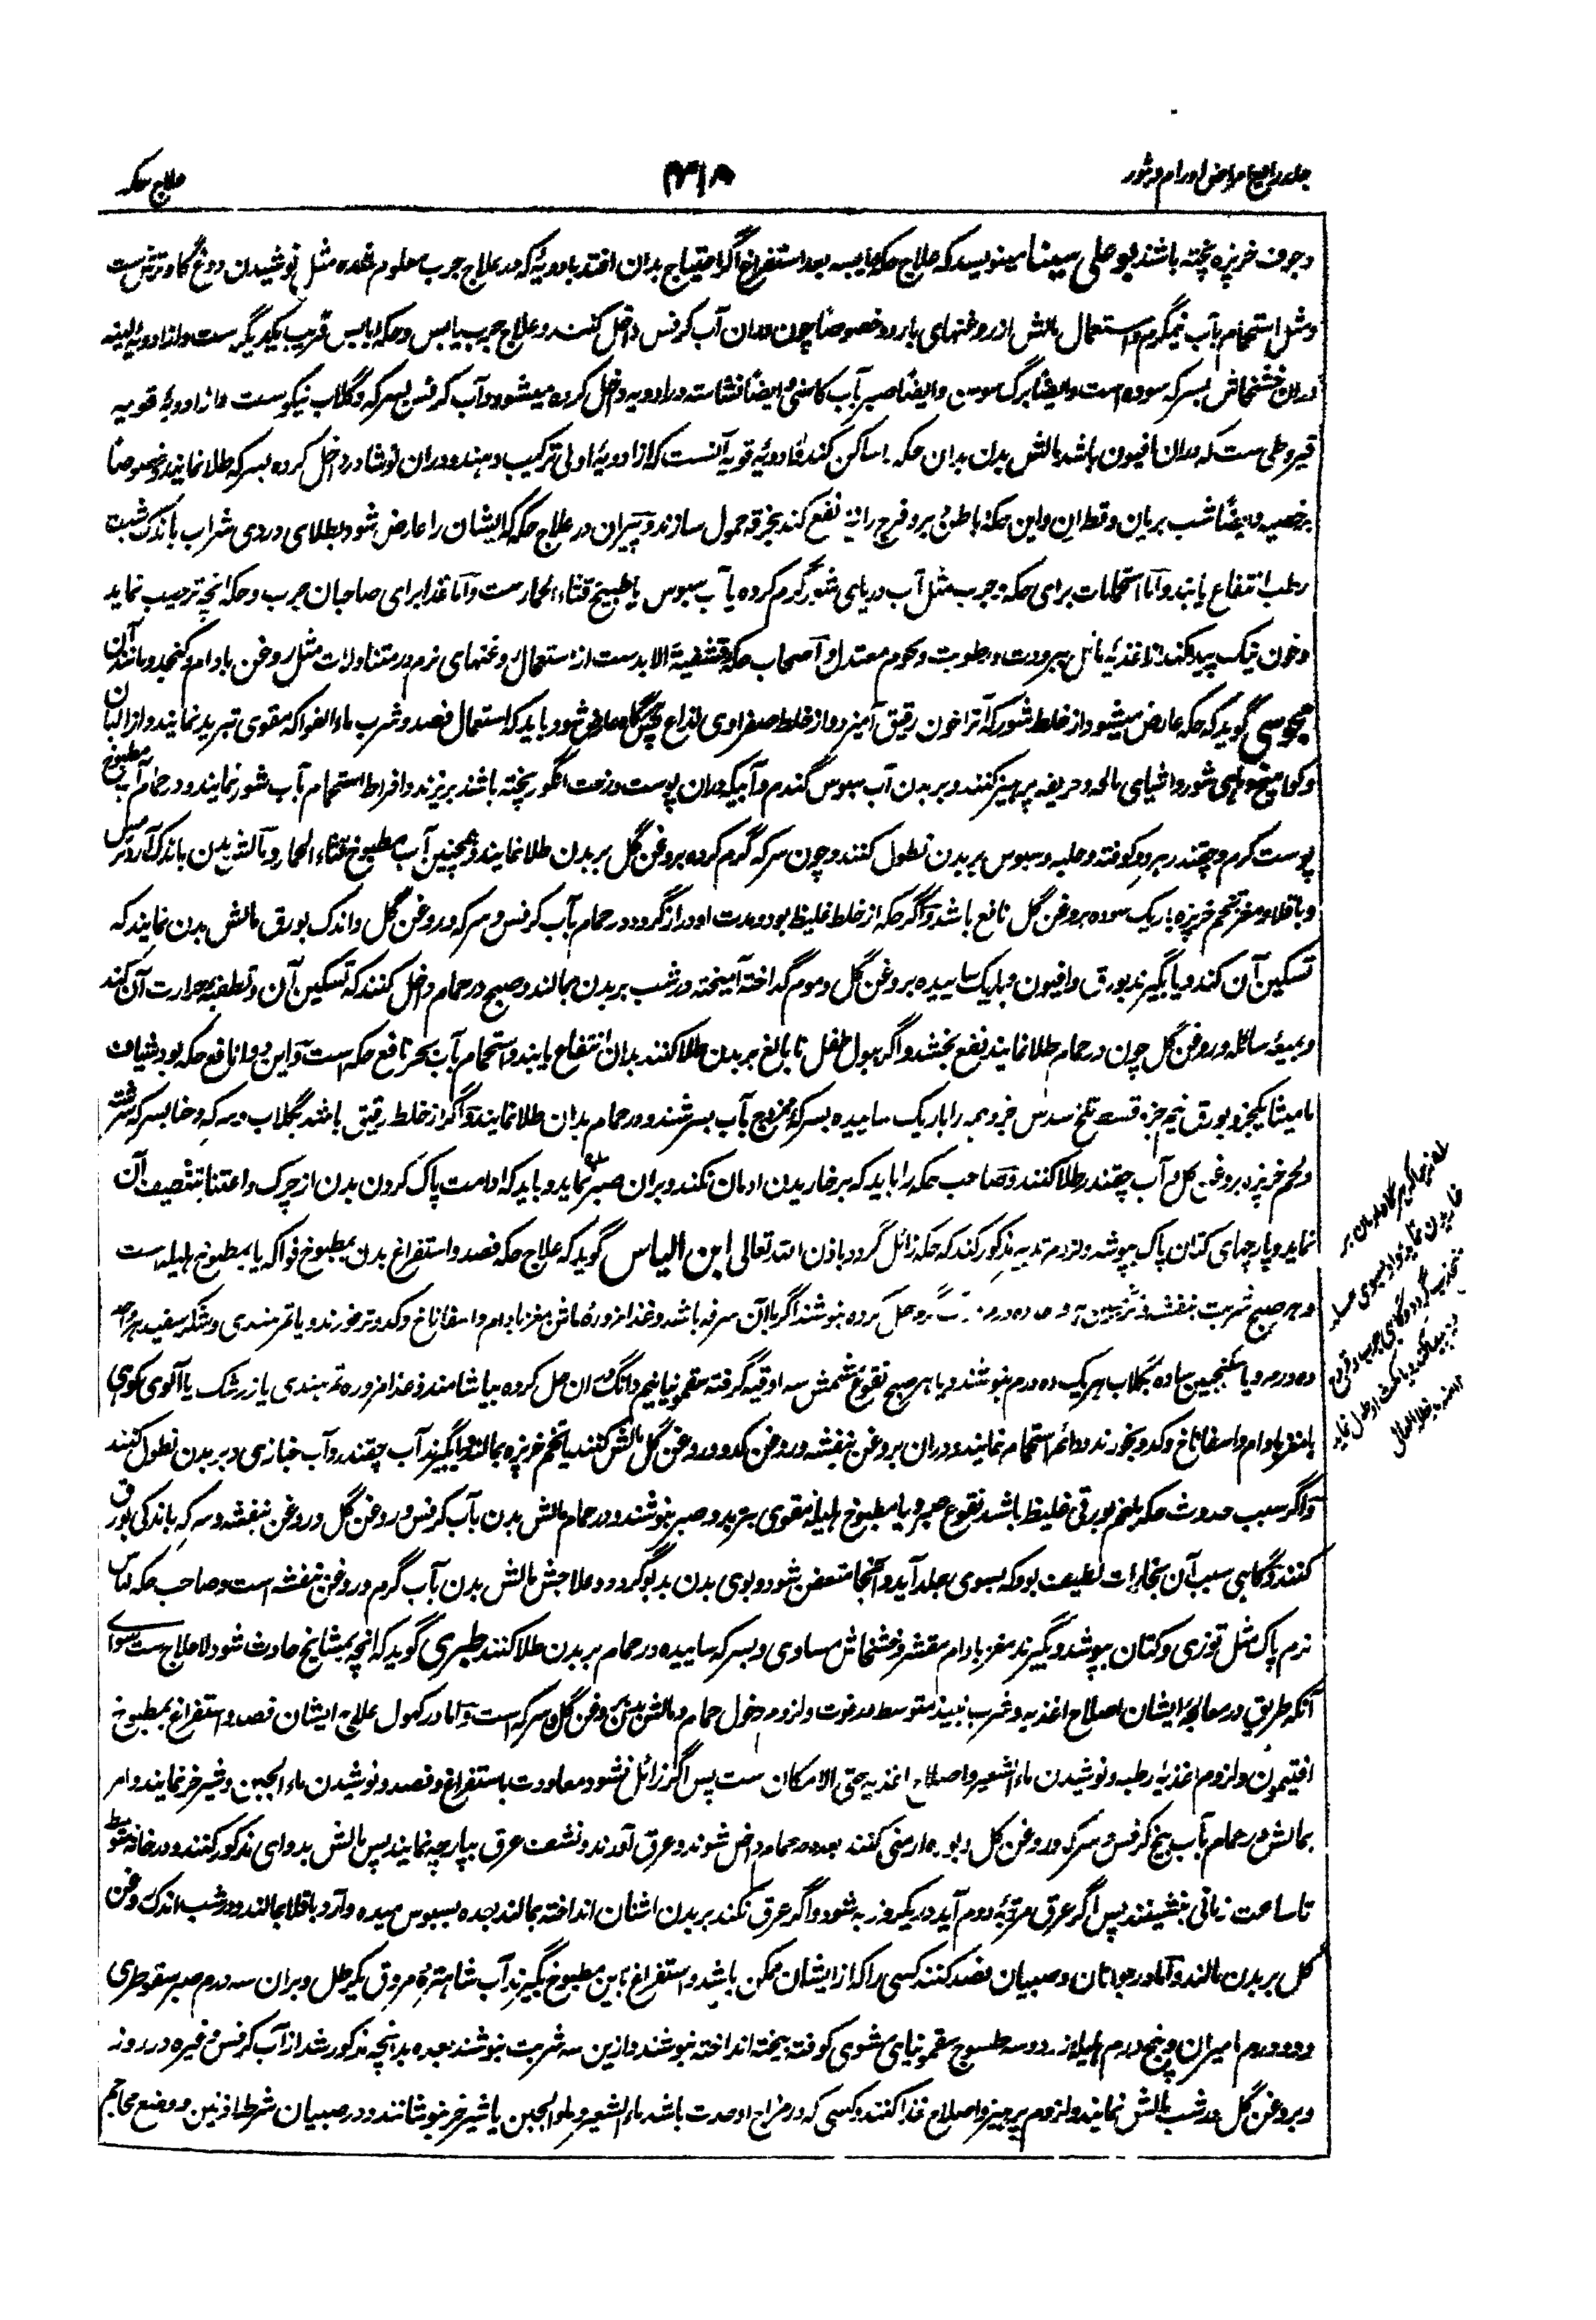 جلد رابع امراض اورام و بثور
علاج حکه
در جوف خرپزه پخته باشند بوعلی سینا مینویسد که علاج حکه یابسه بعد استفراغ اگر احتیاج بدان افتد بادویه که در علاج جرب معلوم شده مثل نوشیدن دوغ گاو ترش ست
و مثل استحمام بآب نیمگرم و استعمال مالش از روغنهای بارد و خصوصاً چون دران آب کرفس داخل کنند و علاج جرب یابس و حکه یابس قریب یکدیگر ست و از ادویه لینه
دران خشخاش بسرکه سوده است و ایضاً برگ سوسن و ایضاً صبر بآب کاسنی و ایضاً نشاسته در ادویه داخل کرده میشود و آب کرفس بسرکه و گلاب نیکوست و از ادویه قویه
قیروطی ست که دران افیون باشد مالش بدن بدان حکه را ساکن کند و ادویه قویه آنست که از ادویه اولی ترکیب دهند و دران نوشادر داخل کرده بسرکه طلا نمایند و خصوصاً
بر خصیه و ایضاً شب بریان و قطران و این حکه باطن بر و فرج را نیز نفع کند بخرقه حمول سازند و پیران در علاج حکه که ایشان را عارض شود بطلای دردی شراب باندک شبت
رطب انتفاع یابند و اما استحمامات برای حکه و جرب مثل آب دریای شور گرم کرده یا آب سبوس یا طبیخ قثاء الحمار ست و اما غذا برای صاحبان جرب و حکه انچه ترطیب نماید
و خون نیک پیدا کند از اغذیه مائل ببرودت و رطوبت و لحوم معتدل و اصحاب حکه قشفیه الابدست از استعمال روغنهای نرم در متناولات مثل روغن بادام و کنجد و مانند آن
مجوسی گوید که حکه عارض میشود از خلط شور که آنرا خون رقیق آمیزد و از خلط صفراوی لذاع پس هرگاه عارض شود باید که استعمال فصد و شرب ماء الفواکه مقوی تبرید نمایند و از البان
و کوامیخ و ماهی شور و اشیای مالحه و حریفه پرهیز کنند و بر بدن آب سبوس گندم و آبیکه دران پوست درخت انگور پخته باشند بریزند و افراط استحمام بآب شور نمایند و در حمام آب مطبوخ
پوست کرم و چقندر هر دو کوفته و حلبه و سبوس بر بدن نطول کنند و چون سرکه گرم کرده بروغن گل بر بدن طلا نمایند و همچنین آب مطبوخ قثاء الحمار و مالش بدن باندک آرد ترمس
و باقلا و مغز تخم خرپزه باریک سوده بروغن گل نافع باشد و اگر حکه از خلط غلیظ بود و مدت او دراز گردد در حمام بآب کرفس و سرکه و روغن گل و اندک بورق مالش بدن نمایند که
تسکین آن کند و یا بگیرند بورق و افیون و باریک سائیده بروغن گل و موم گداخته آمیخته در شب بر بدن بمالند و صبح در حمام داخل کنند که تسکین آن و تطفیه حرارت آن کند
و میعه سائله و روغن گل چون در حمام طلا نمایند نفع بخشد و اگر بول طفل نابالغ بر بدن طلا کنند بدان انتفاع یابند و استحمام بآب بحر نافع حکه است و این دوا نافع حکه بود شیاف
مامیثا یکجزو بورق نیم جزو قسط تلخ سدس جزو همه را باریک سائیده بسرکه ممزوج بآب بسرشند و در حمام بدان طلا نمایند و اگر از خلط رقیق باشد بگلاب و سرکه و حنا بسرکه سرشته
و لحم خرپزه بروغن گل و آب چقندر طلا کنند و صاحب حکه را باید که بر خاریدن ادمان نکند و بران صبر نماید و باید که ادامت پاک کردن بدن از چرک و اعتنا بتنظیف آن
نماید و پارچهای کتان پاک بپوشد و لزوم تدبیر مذکور کند که حکه زائل گردد باذن الله تعالی ابن الیاس گوید که علاج حکه فصد و استفراغ بدن بمطبوخ فواکه یا بمطبوخ هلیله است
ده درم و یا سکنجبین ساده بگلاب هر یک ده درم بنوشند و یا هر صبح نقوع مشمش سه اوقیه گرفته سقمونیا نیم دانگ دران حل کرده بیاشامند و غذا مزوره تمرهندی یا زرشک یا آلوی کوهی
با مغز بادام و اسفاناخ و کدو بخورند و دائم استحمام نمایند و دران بروغن بنفشه و روغن کدو و روغن گل مالش کنند یا تخم خرپزه بمالند و یا بگیرند آب چقندر و آب خبازی و بر بدن نطول کنند
و اگر سبب حدوث حکه بلغم بورقی غلیظ باشد نقوع صبر و یا مطبوخ هلیله مقوی بتربد و صبر بنوشند و در حمام مالش بدن بآب کرفس و روغن گل و روغن بنفشه و سرکه باندکی بورق
کنند و گاهی سبب آن بخارات لطیفت بود که بسوی جلد آید و آنجا متعفن شود و بوی بدن بدبو گردد و علاجش مالش بدن بآب گرم و روغن بنفشه است و صاحب حکه لباس
نرم پاک مثل توزی و کتان بپوشد و بگیرند مغز بادام مقشر و خشخاش مساوی و بسرکه سائیده در حمام بر بدن طلا کنند طبری گوید که انچه بمشایخ حادث شود لاعلاج ست سوای
آنکه طریق در معالجه ایشان اصلاح اغذیه و شرب نبیذ متوسط در قوت و لزوم دخول حمام و مالش بدن بروغن گل و سرکه است و اما در کهول علاج ایشان فصد و استفراغ بمطبوخ
افتیمون و لزوم اغذیه رطبه و نوشیدن ماء الشعیر و اصلاح اغذیه حتی الامکان ست پس اگر زائل نشود معاودت باستفراغ و فصد و نوشیدن ماء الجبن و شیر خر نمایند و امر
بمالش در حمام بآب بیخ کرفس و سرکه و روغن گل و بوره ارمنی کنند بعده در حمام داخل شوند و عرق آورند و نشف عرق بپارچه نمایند پس مالش بدوای مذکور کنند و در خانه متوسط
تا ساعت زمانی بنشینند پس اگر عرق مرتبه دوم آید در یکروز به شود و اگر عرق نکند بر بدن اشنان انداخته بمالند بعده بسبوس میده و آرد باقلا بمالند و در شب اندک روغن
گل بر بدن مالند و اما در جوانان و صبیان فصد کنند کسی را که از ایشان ممکن باشد و استفراغ باین مطبوخ بگیرند آب شاهتره مروق یکرطل و بران سه درم صبر سقوطری
و دو درم امیران و پنج درم هلیله زرد و سه طسوج سقمونیای مشوی کوفته بیخته انداخته بنوشند و ازین سه شربت بنوشند بعده بدانچه مذکور شد از آب کرفس و غیره در روز
و بروغن گل در شب مالش نمایند و لزوم پرهیز و اصلاح غذا کنند و کسی که در مزاج او حدت باشد ماء الشعیر و ماء الجبن یا شیر خر بنوشانند و در صبیان شرط اذنین و وضع محاجم